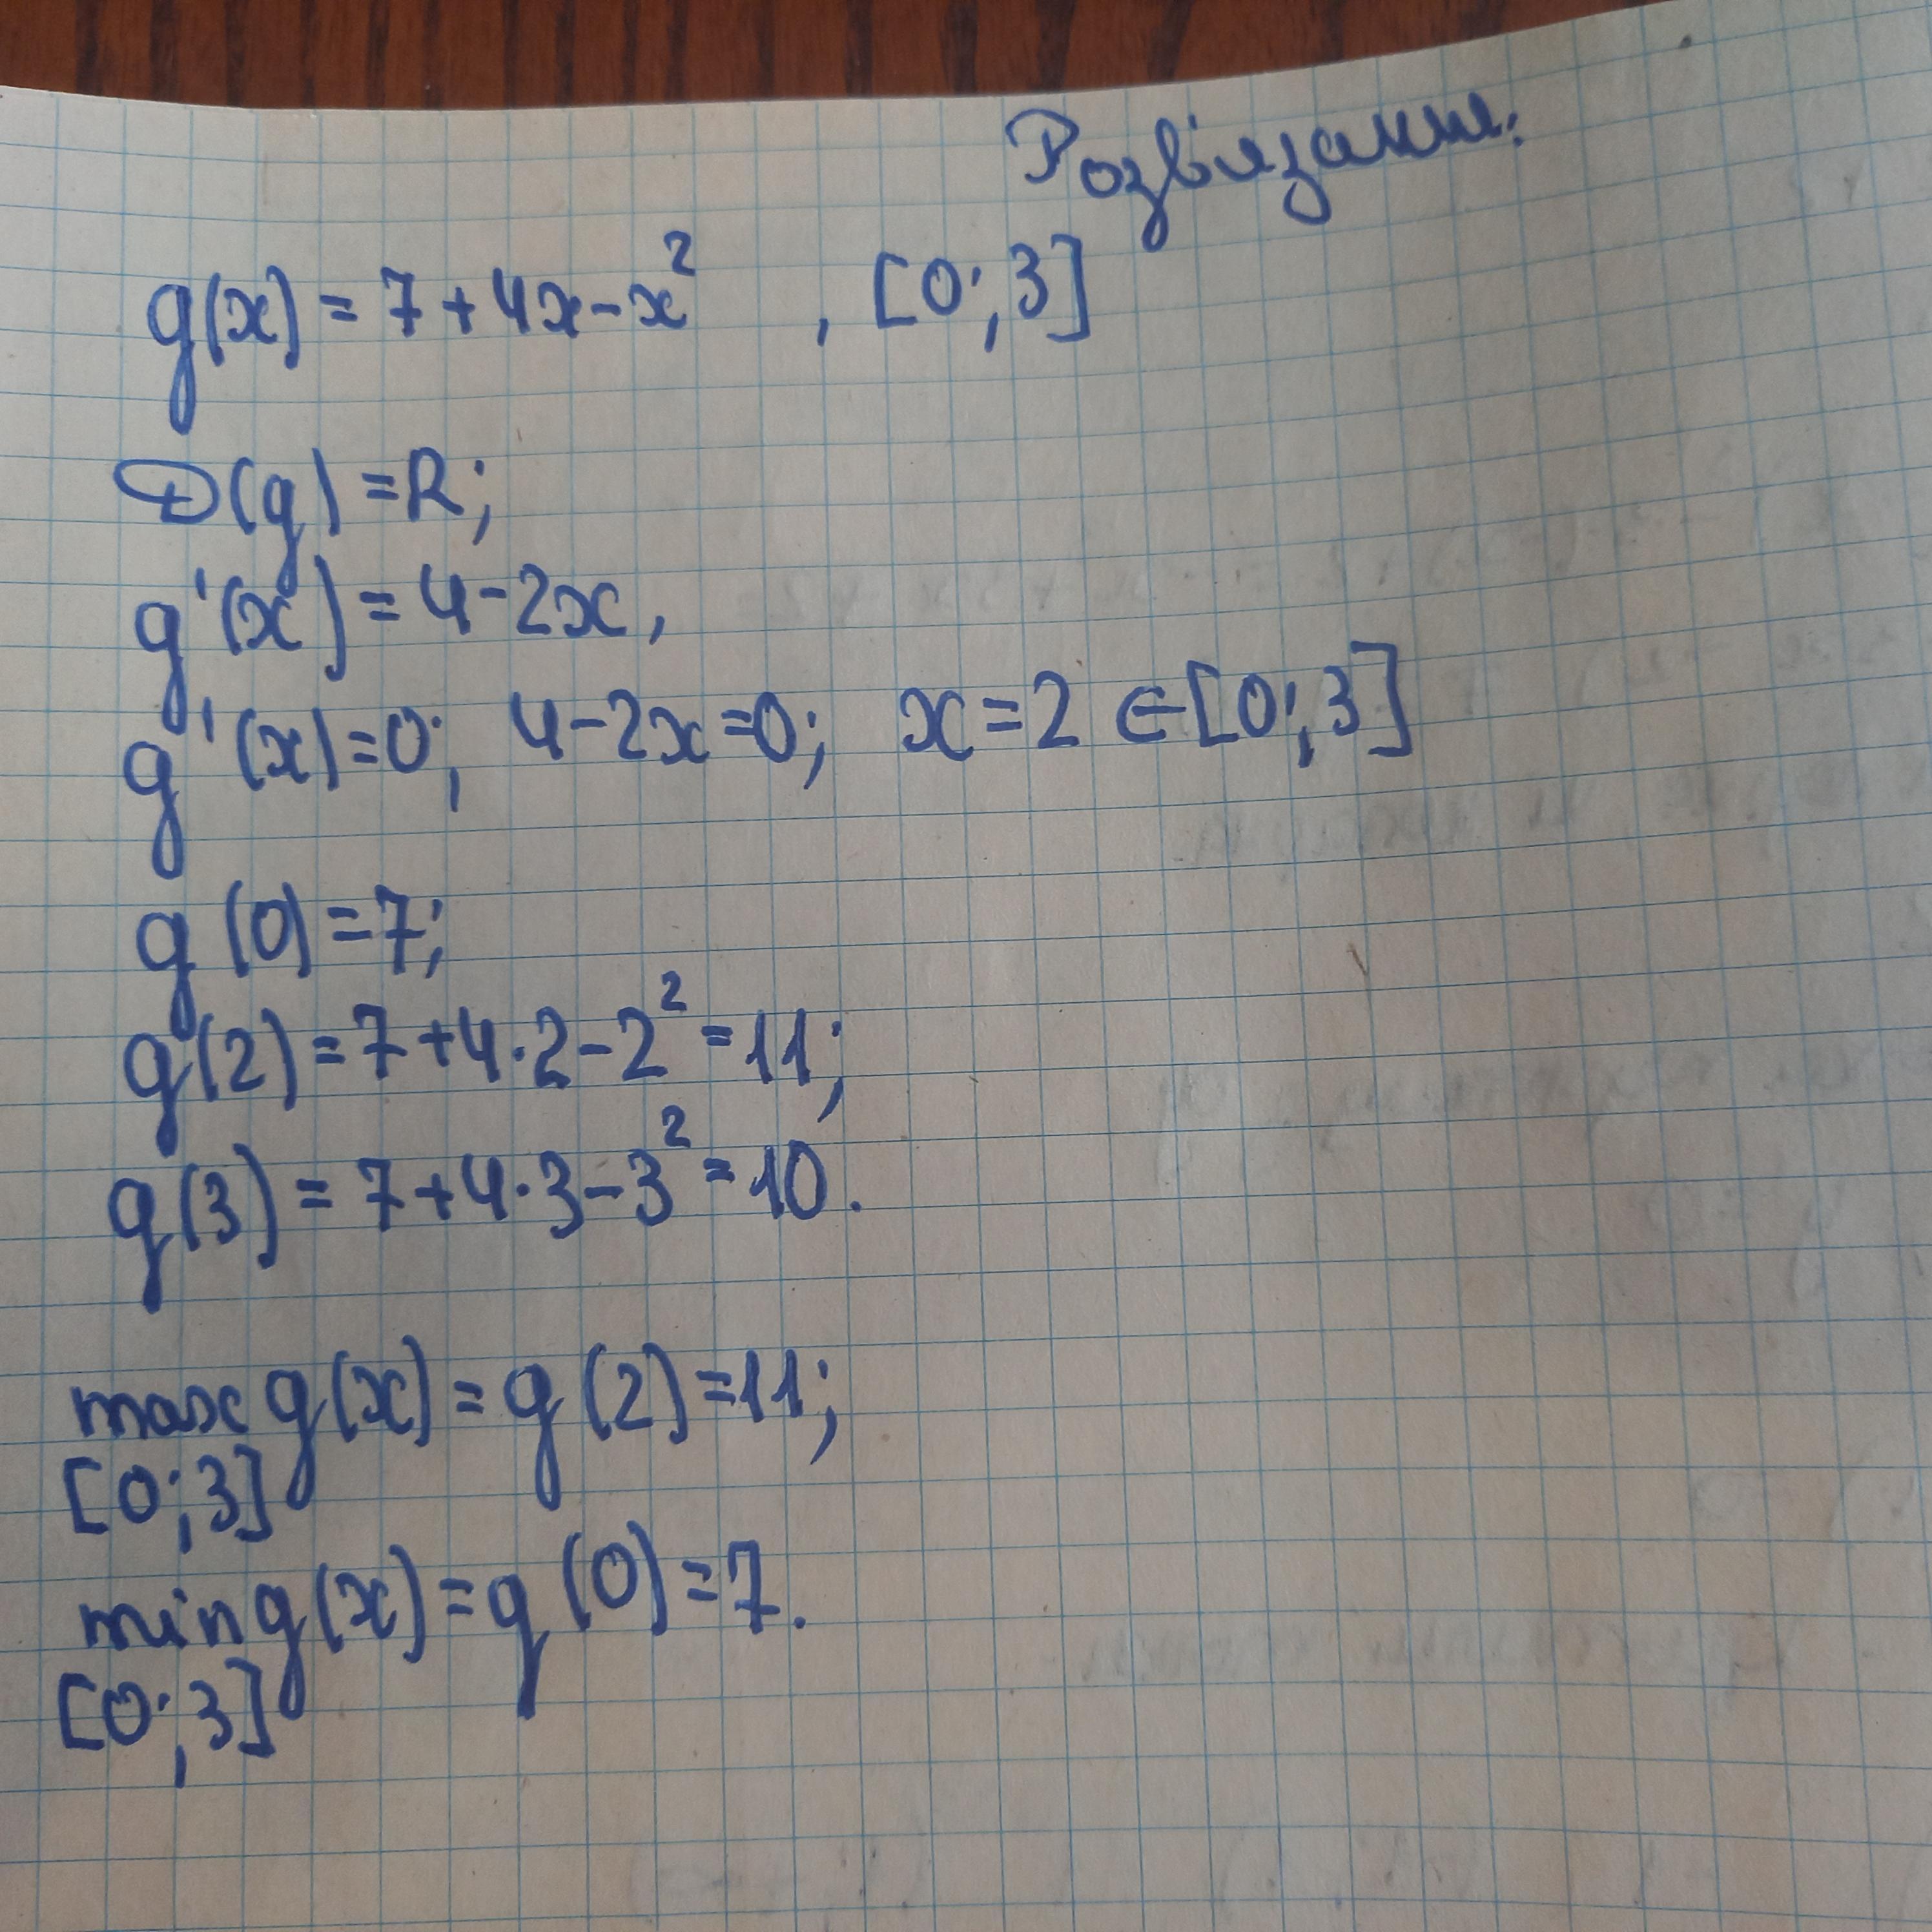 Розв'язання:
g(x) = 7 + 4x - x² , [0; 3]
D(g) = R;
g'(x) = 4 - 2x,
g'(x) = 0; 4 - 2x = 0; x = 2 ∈ [0; 3]
g(0) = 7;
g(2) = 7 + 4·2 - 2² = 11;
g(3) = 7 + 4·3 - 3² = 10.
max g(x) = g(2) = 11;
[0; 3]
min g(x) = g(0) = 7.
[0; 3]